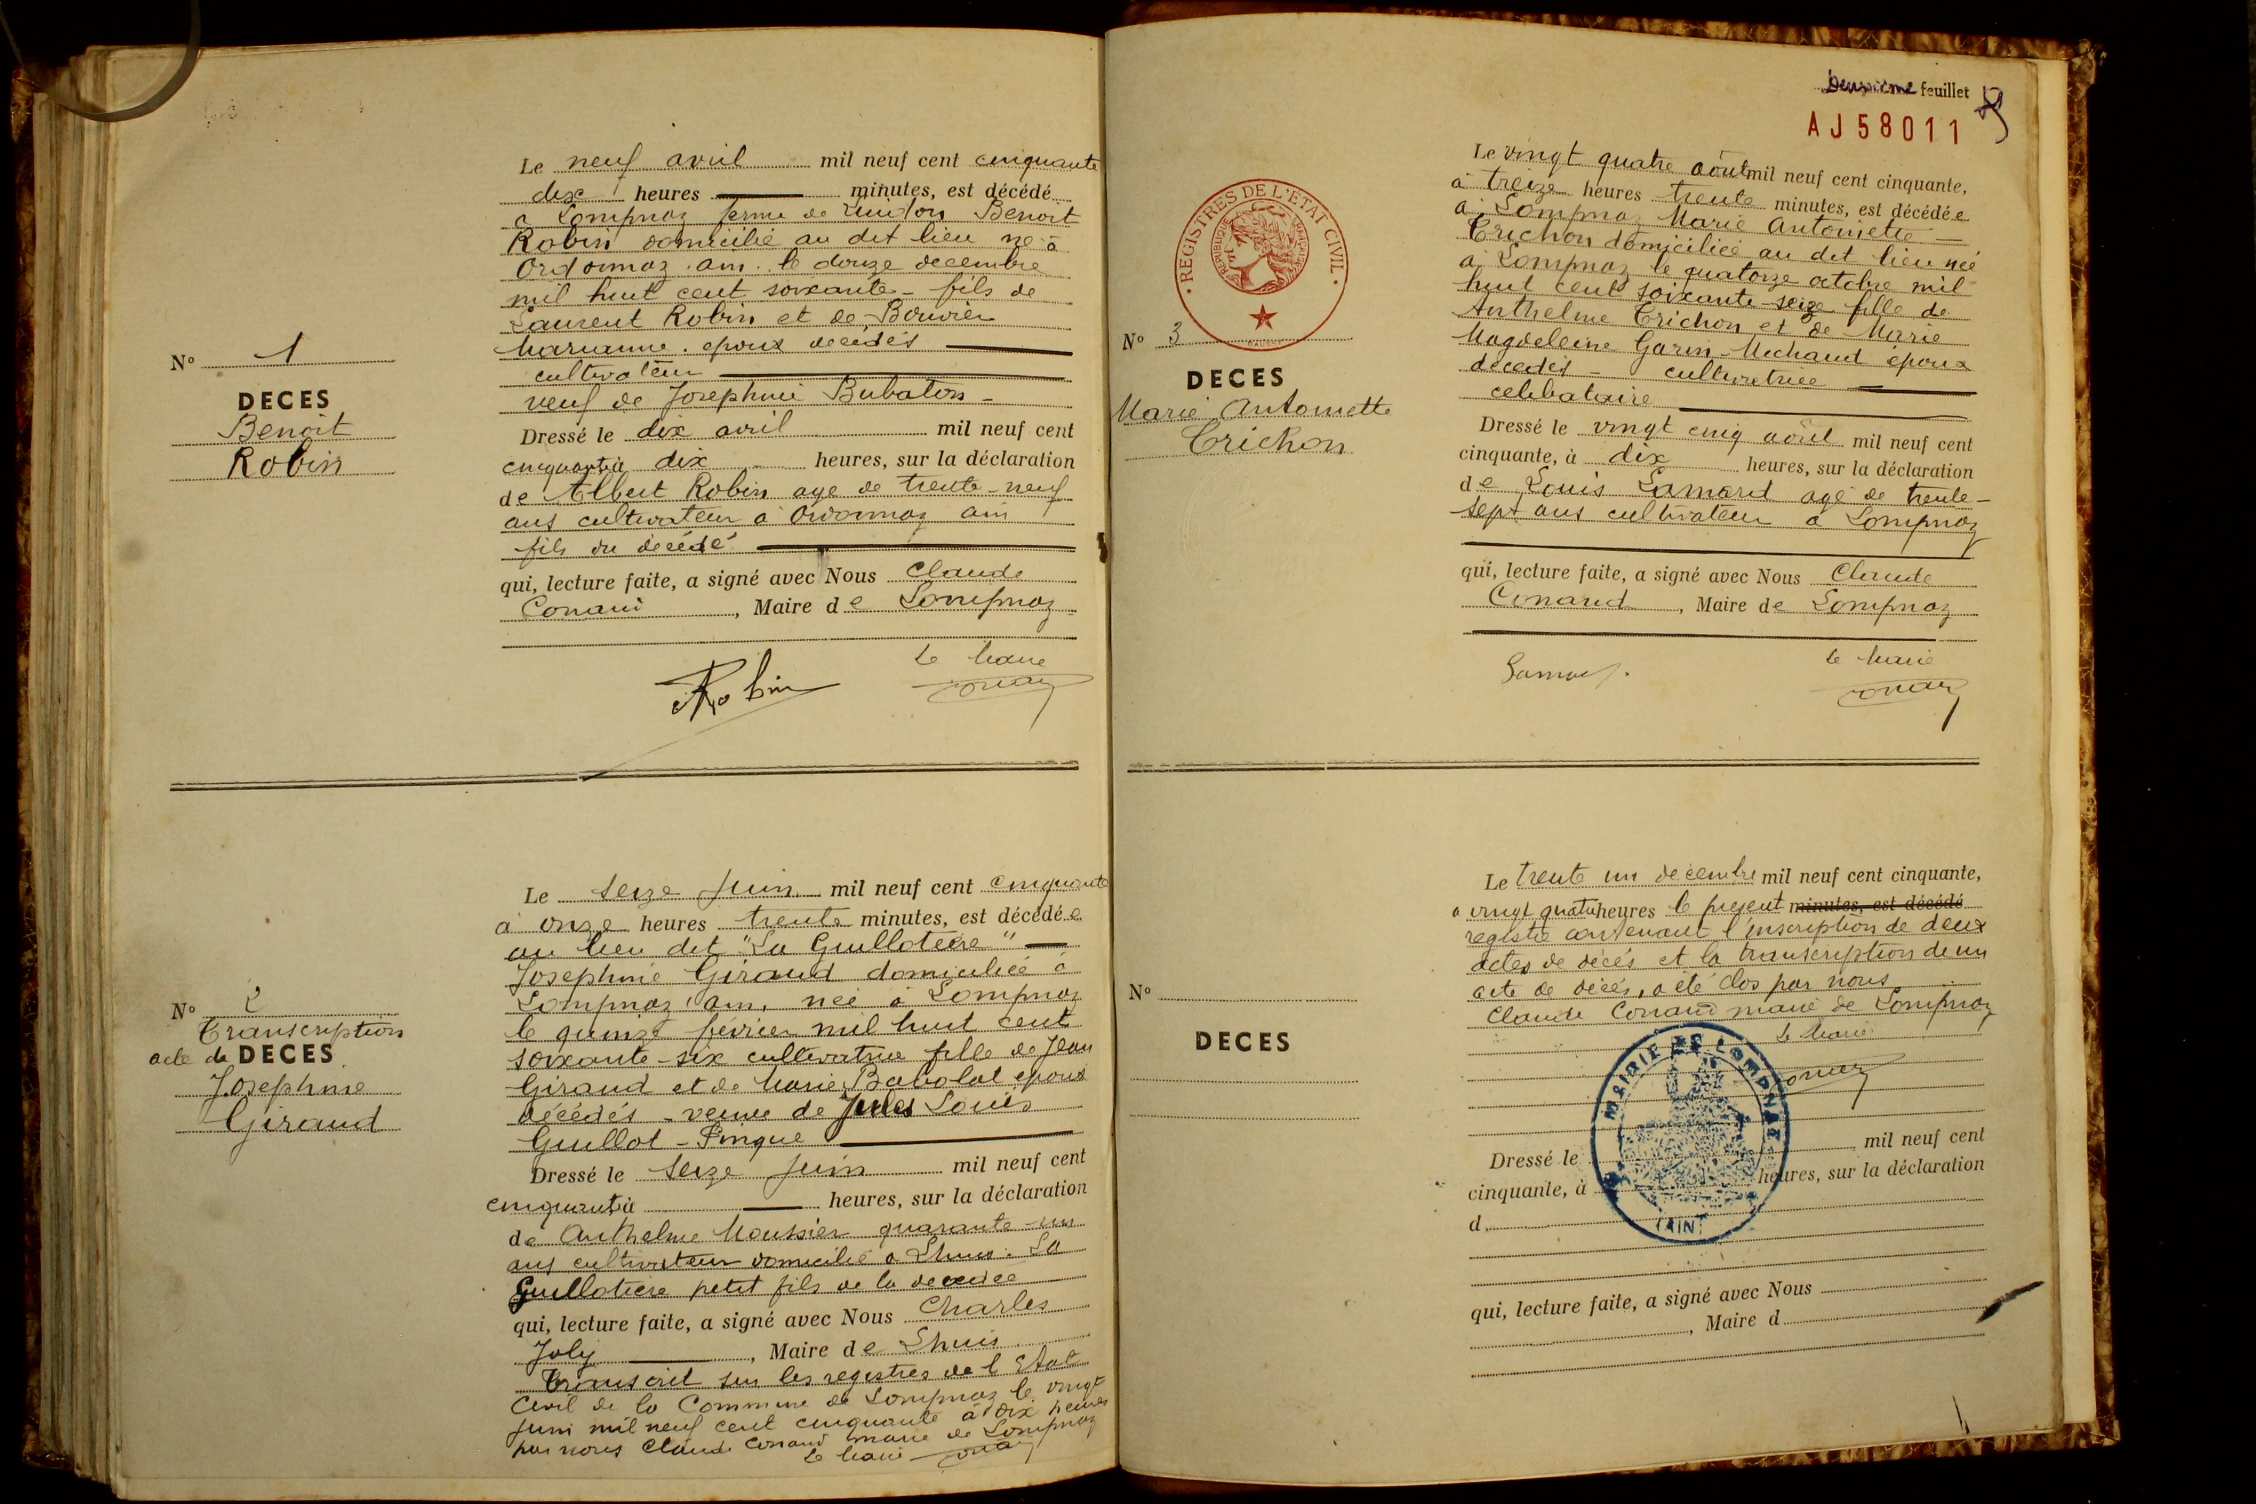 Le neuf avril mil neuf cent cinquante
dix heures minutes, est décédé
a Lompnaz ferme de Luidon Benoit
Robin domicilié au dit lieu né à
Ordonnaz. ain. le douze decembre
mil huit cent soixante - fils de
Laurent Robin et de Bouvier
Marianne. epoux décédés
cultivateur
veuf de Josephine Bubaton -
Dressé le dix avril mil neuf cent
cinquante à dix heures, sur la déclaration
de Albert Robin age de trente-neuf
ans cultivateur à Ordonnaz ain
fils du décédé
qui, lecture faite, a signé avec Nous Claude
Conand, Maire de Lompnaz
Le Maire
Robin Conand
N° 1
DECES
Benoit
Robin
Le seize Juin mil neuf cent cinquante
à onze heures trente minutes, est décédée
au lieu dit "La Guillotière"
Josephine Giraud domiciliée à
Lompnaz ain, née à Lompnaz
le quinze février mil huit cent
soixante-six cultivatrice fille de Jean
Giraud et de Marie Babolat epoux
décédés - veuve de Jules Louis
Guillot - Pingue
Dressé le seize Juin mil neuf cent
cinquante à heures, sur la déclaration
de Anthelme Moussier quarante-un
ans cultivateur domicilié à Lhuis. La
Guillotière petit fils de la decedée
qui, lecture faite, a signé avec Nous Charles
Joly, Maire de Lhuis
Transcrit sur les registres de l'Etat
Civil de la Commune de Lompnaz le vingt
Juin mil neuf cent cinquante à dix heures
par nous Claude Conand maire de Lompnaz
Le Maire Conand
N° 2
Transcription
acte de DECES
Josephine
Giraud
Deuxième feuillet
AJ58011
Le vingt quatre août mil neuf cent cinquante,
à treize heures trente minutes, est décédée
a Lompnaz Marie Antoinette
Trichon domiciliée au dit lieu née
à Lompnaz le quatorze octobre mil
huit cent soixante-seize fille de
Anthelme Trichon et de Marie
Magdeleine Garin-Michaud époux
décedés - cultivatrice
celibataire
Dressé le vingt cinq août mil neuf cent
cinquante, à dix heures, sur la déclaration
de Louis Lamard agé de trente-
sept ans cultivateur à Lompnaz
qui, lecture faite, a signé avec Nous Claude
Conand, Maire de Lompnaz
Le Maire
Lamard. Conand
REGISTRES DE L'ÉTAT CIVIL
N° 3
DECES
Marie Antoinette
Trichon
Le trente un decembre mil neuf cent cinquante,
a vingt quatre heures le present minutes, est décédé
registre contenant l'inscription de deux
actes de décés et la transcription de un
acte de décés, a été clos par nous
Claude Conand maire de Lompnaz
Le Maire
Conand
MAIRIE DE LOMPNAZ
(AIN)
N°
DECES
Dressé le mil neuf cent
cinquante, à heures, sur la déclaration
d
qui, lecture faite, a signé avec Nous
, Maire d